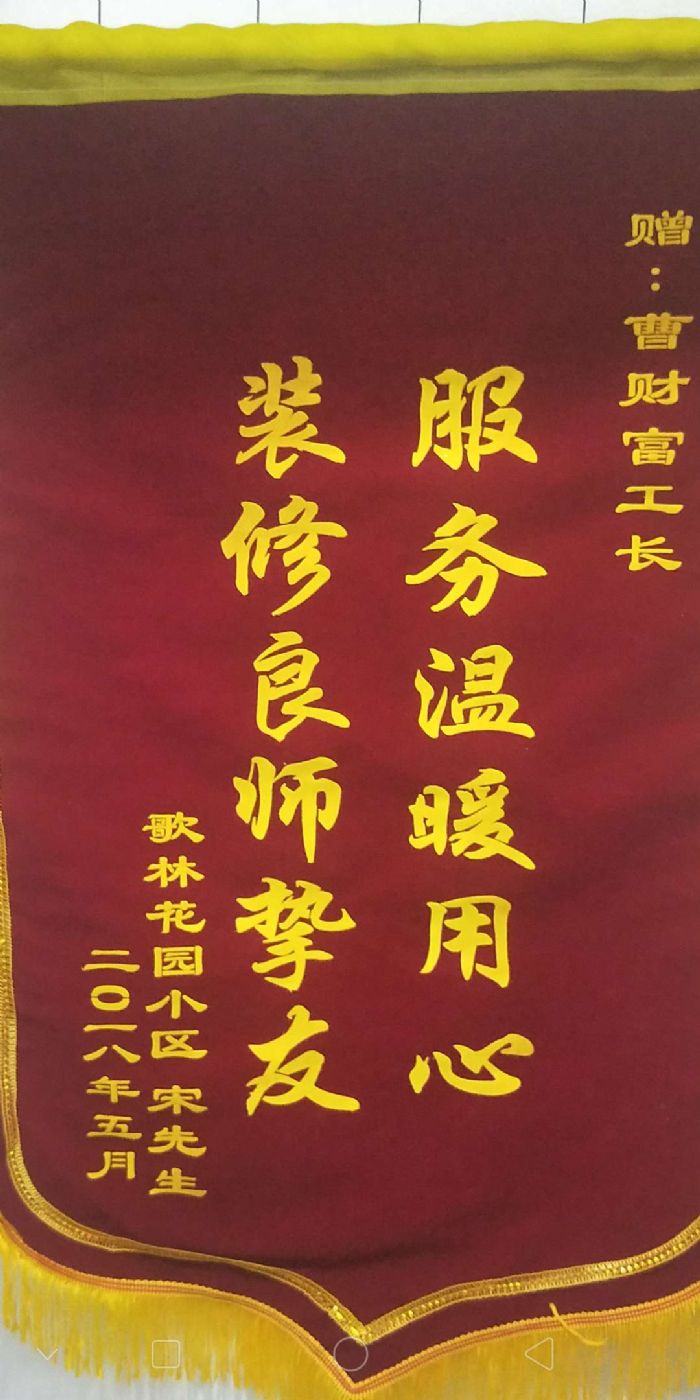 赠:曹财富工长
服务温暖用心
装修良师挚友
歌林花园小区 宋先生
二〇一八年五月